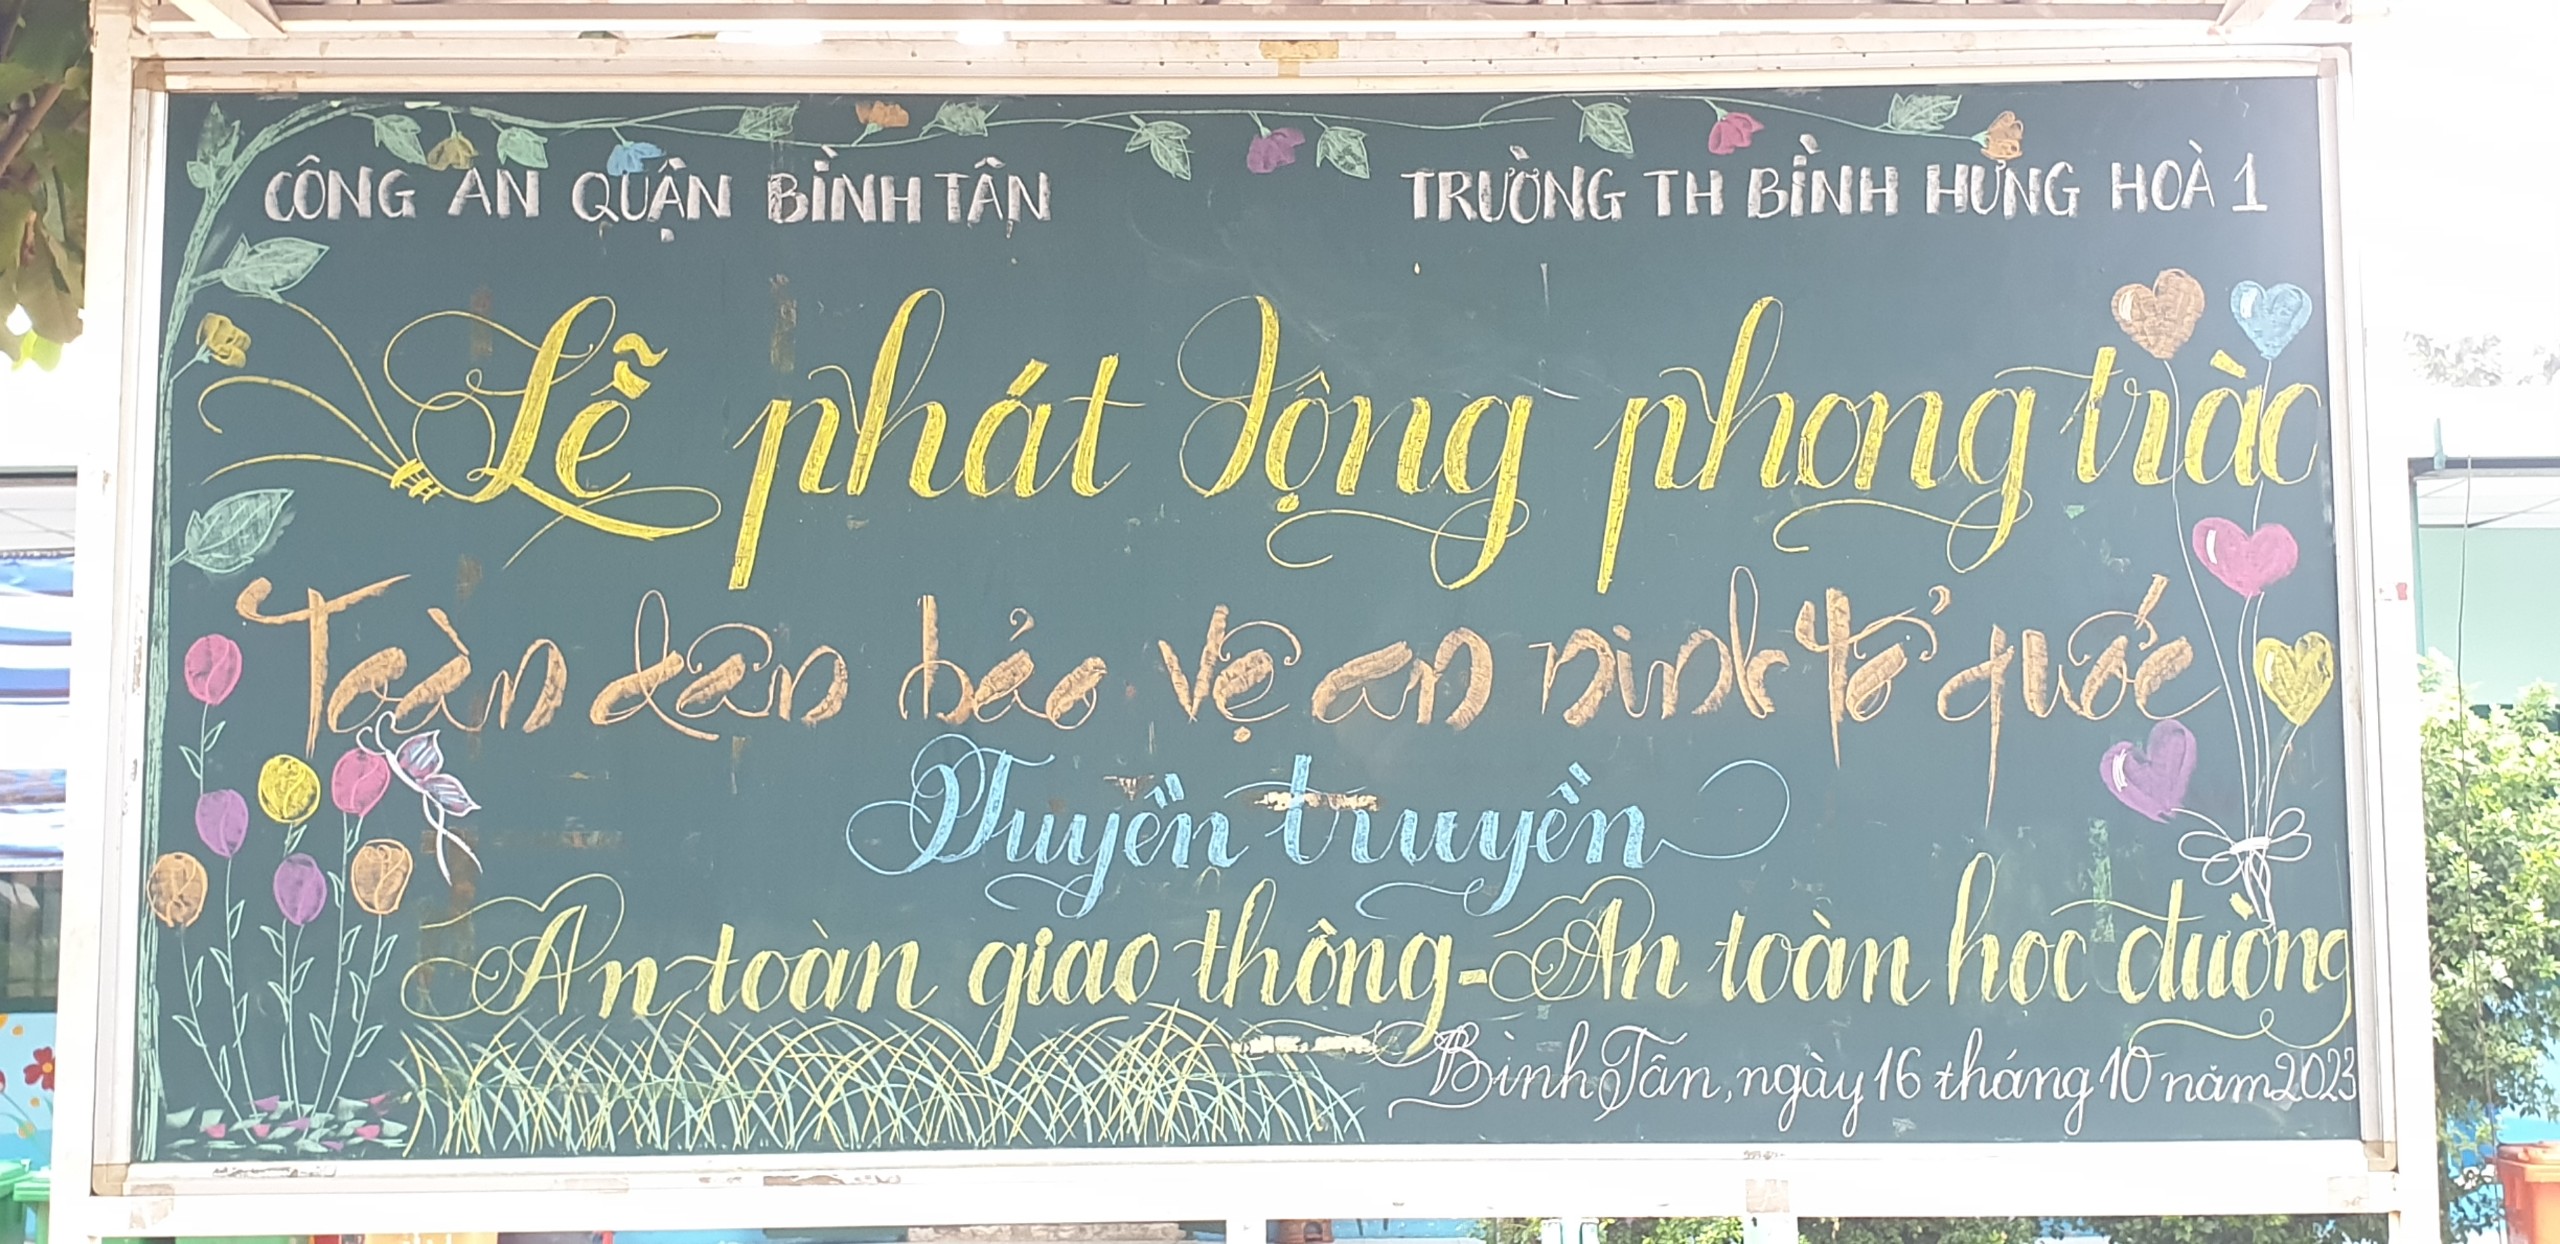 CÔNG AN QUẬN BÌNH TÂN
TRƯỜNG TH BÌNH HƯNG HOÀ 1
Lễ phát động phong trào
Toàn dân bảo vệ an ninh tổ quốc
Tuyền truyền
An toàn giao thông - An toàn học đường
Bình Tân, ngày 16 tháng 10 năm 2023